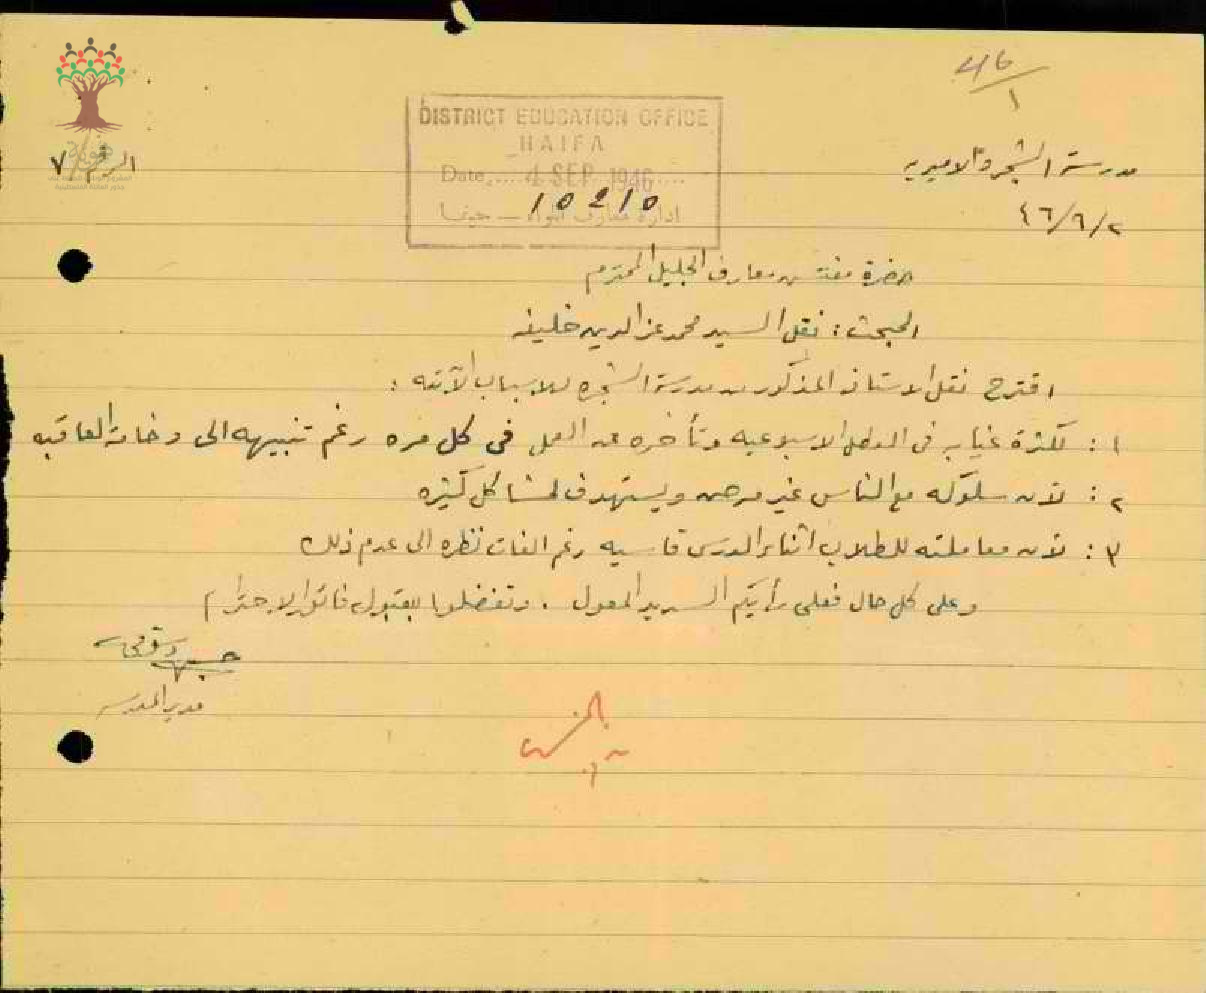 46/1
DISTRICT EDUCATION OFFICE
HAIFA
Date..... 4 SEP 1946 ....
10210
ادارة معارف لواء — حيفا
مدرسة الشجره الاميريه
٤٦/٩/٢
الرقم ٧
حضرة مفتش معارف الجليل المحترم
المبحث : نقل السيد محمد عزالدين خليفه
اقترح نقل الاستاذ المذكور من مدرسة الشجره للاسباب الآتيه :
١ : لكثرة غيابه في العطل الاسبوعيه وتأخره عن العمل في كل مره رغم تنبيهه الى وخامة العاقبه
٢ : لأن سلوكه مع الناس غير مرضي ويستهدف لمشاكل كثيره
٣ : لأن معاملته للطلاب اثناء الدرس قاسيه رغم الفات نظره الى عدم ذلك
وعلى كل حال فعلى رأيكم السديد المعول . وتفضلوا بقبول فائق الاحترام
مدير المدرسه